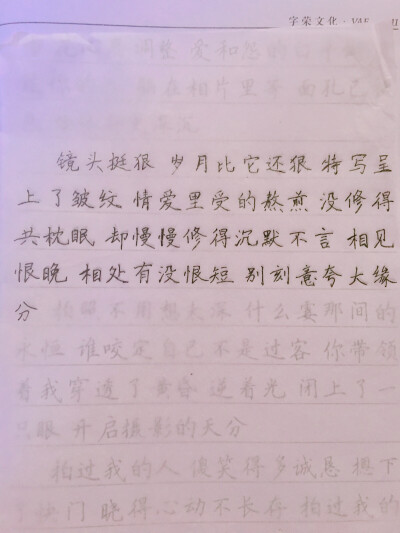 字荣文化
调整 爱和怨的
在相片里 面孔已
镜头挺狠 岁月比它还狠 特写呈
上了皱纹 情爱里受的熬煎 没修得
共枕眠 却慢慢修得沉默不言 相见
恨晚 相处有没恨短 别刻意夸大缘
分 拍照不用想太深 什么那间的
永恒 谁咬定自己不是过客 你带领
着我穿透了黄昏 逆着光 闭上了一
只眼 开启摄影的天分
拍过我的人 傻笑得多诚恳 摁下
了快门 晓得心动不长存 拍过我的